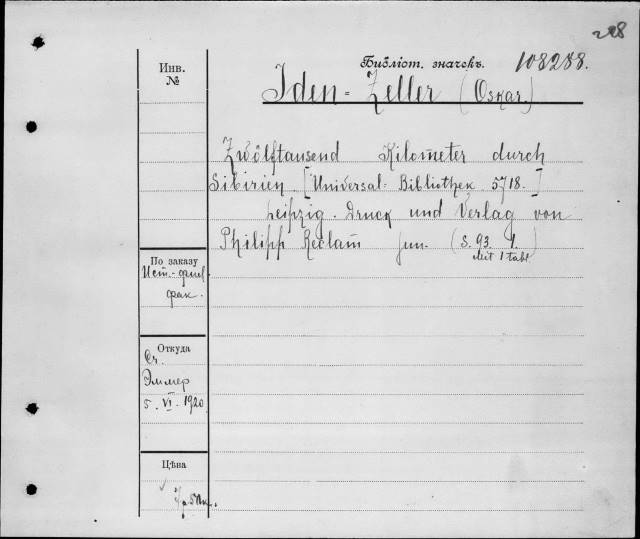 Библіот. значекъ. 108288.
Инв.
№
Iden-Zeller (Oskar.)
Zwölftausend Kilometer durch
Sibirien. [Universal-Bibliothek 5718.]
Leipzig. Druck und Verlag von
Philipp Reclam jun. (S. 93. 1.)
Mit 1 tabl
По заказу
Ист.-фил.
фак.
Откуда
Эммер
5. VI. 1920
Цѣна